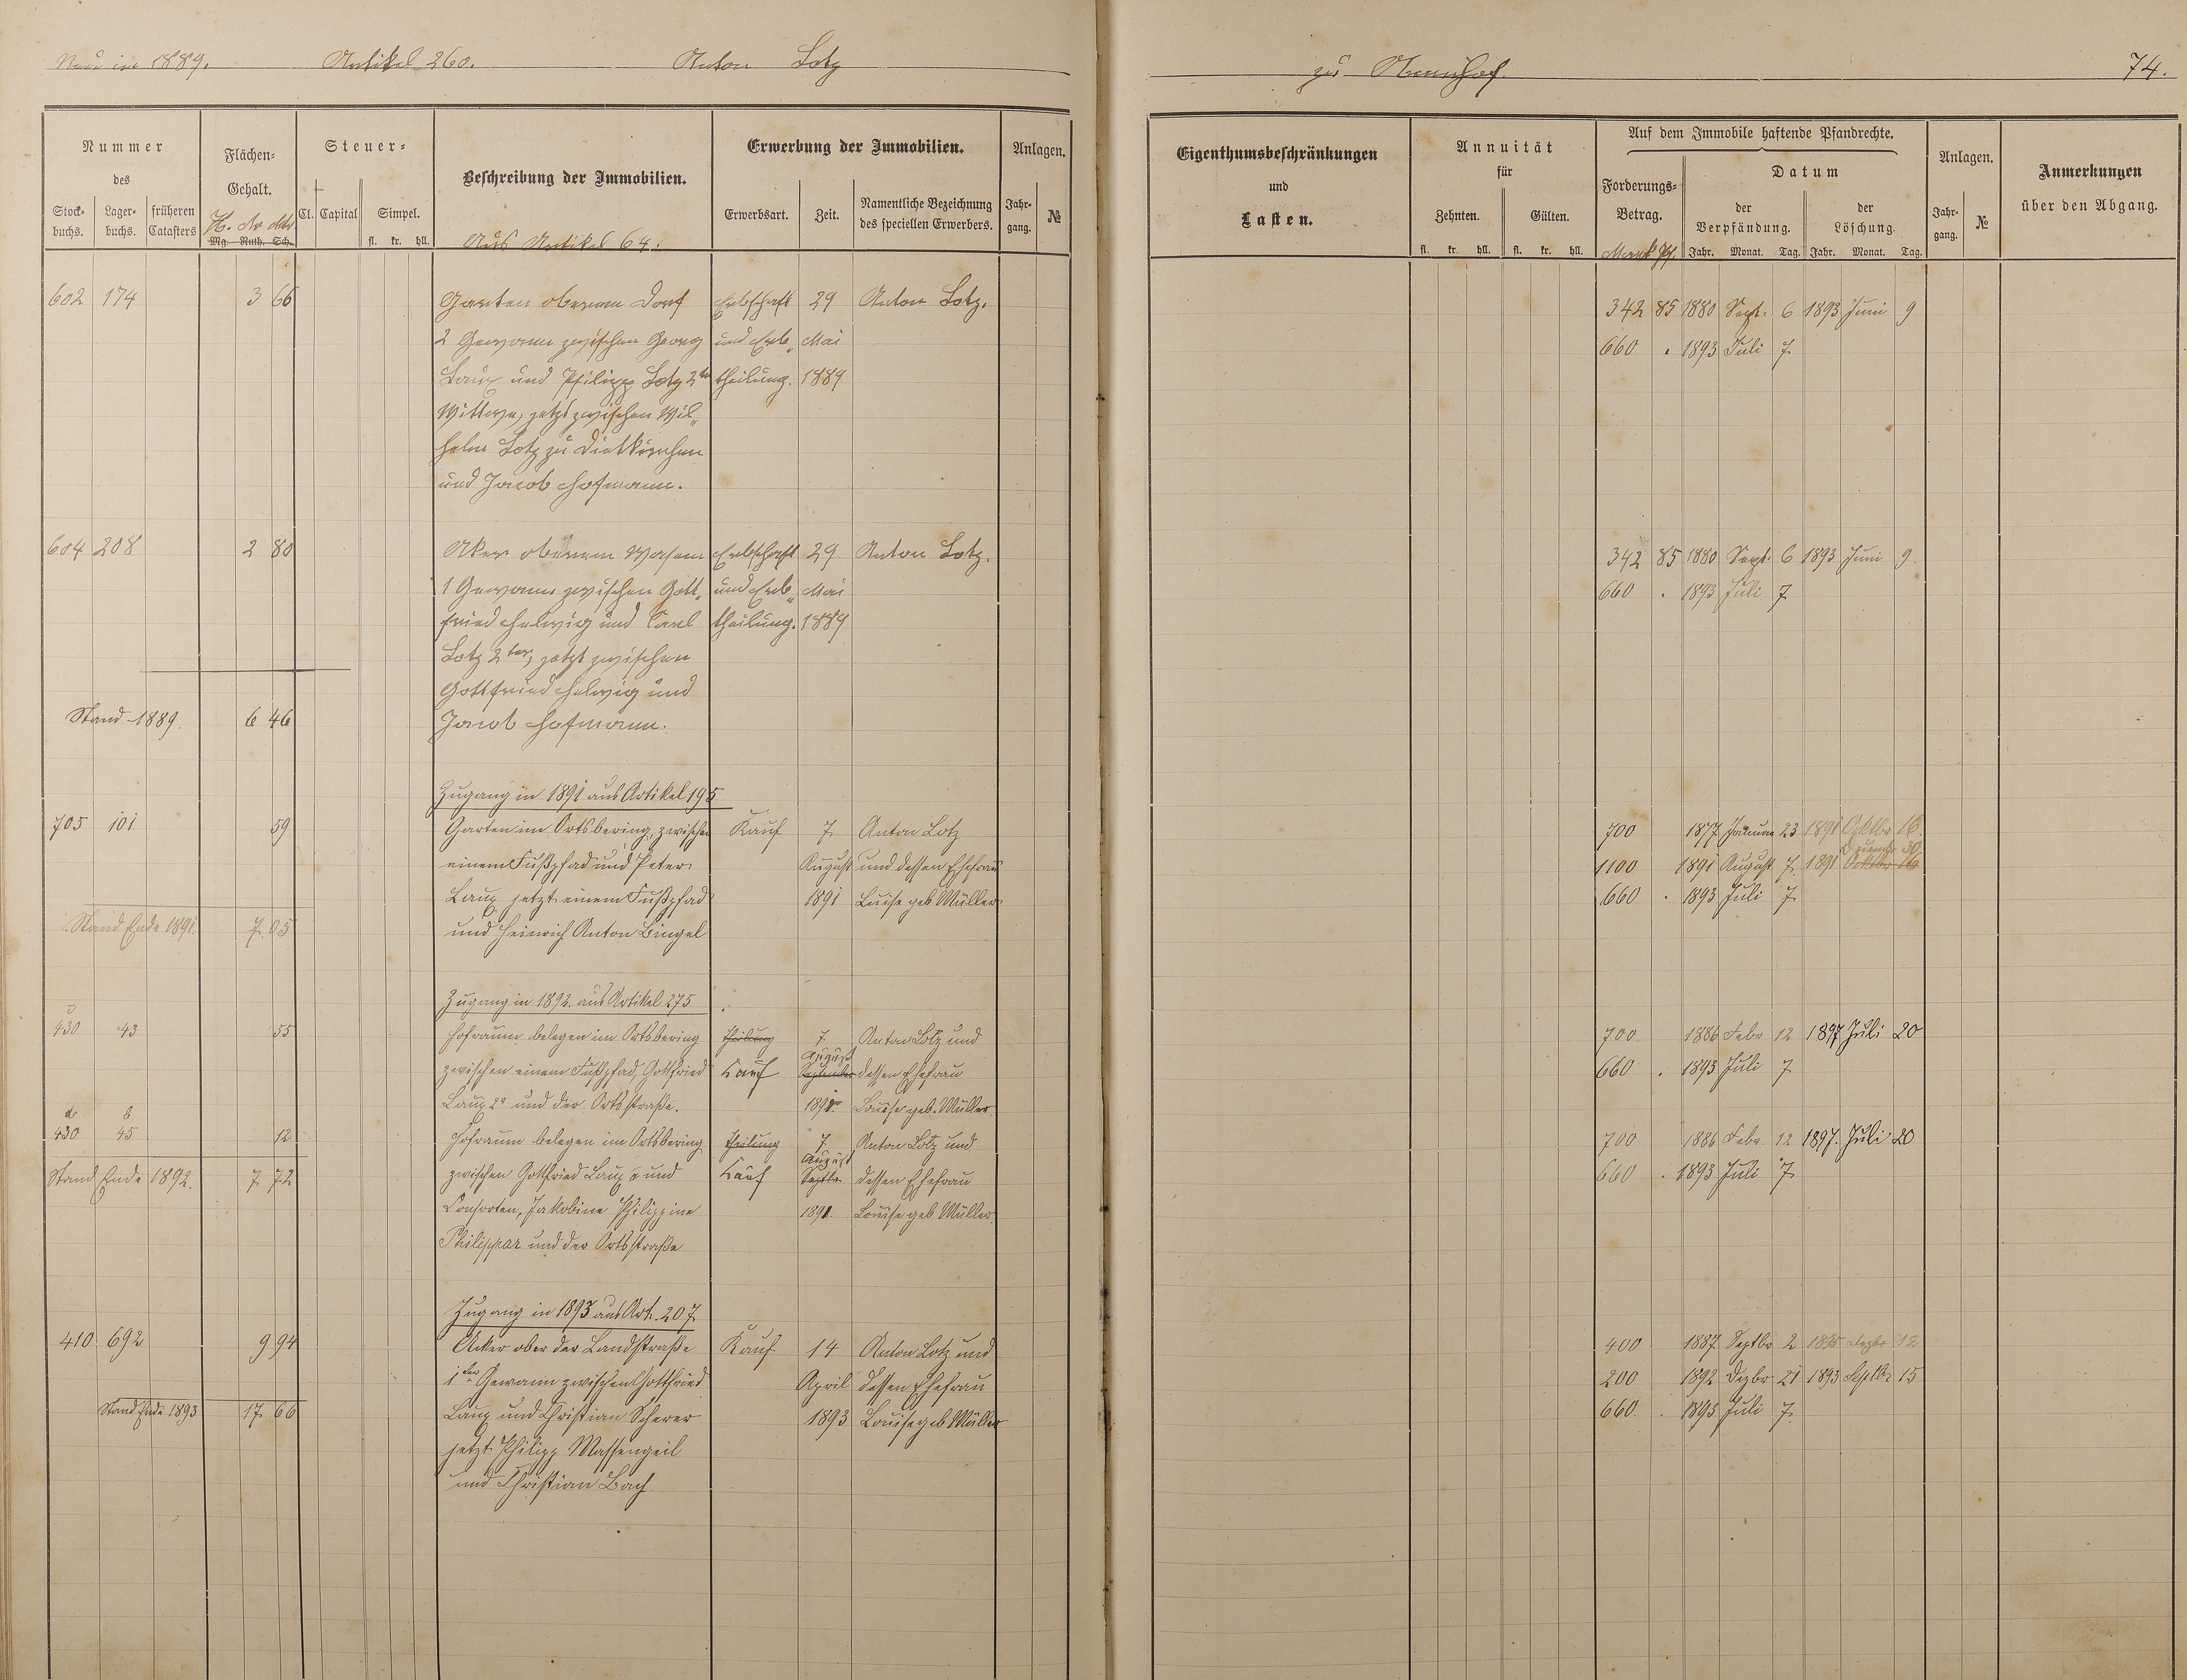 Neu in 1889. Artikel 260. Anton Lotz
zu Obernhof. 74.
Nummer des
Stock-buchs. Lager-buchs. früheren Catasters
Flächen-Gehalt.
H. Ar
Mg. Ruth. Sch.
Steuer-
Cl. Capital Simpel.
fl. kr. hll.
Beschreibung der Immobilien.
Aus Artikel 64.
Erwerbung der Immobilien.
Erwerbsart. Zeit. Namentliche Bezeichnung des speciellen Erwerbers.
Anlagen.
Jahr-gang. №
Eigenthumsbeschränkungen und Lasten.
Annuität für
Zehnten. Gülten.
fl. kr. hll. fl. kr. hll.
Auf dem Immobile haftende Pfandrechte.
Forderungs-Betrag.
Mark Pf.
Datum
der Verpfändung. der Löschung.
Jahr. Monat. Tag. Jahr. Monat. Tag.
Anlagen.
Jahr-gang. №
Anmerkungen über den Abgang.
602 174 3 66 Garten oberem Dorf Erbschaft 29 Anton Lotz. 342 85 1880 Sept. 6 1893 Juni 9
2 Gewann zwischen Georg und Erb- Mai 660 . 1893 Juli 7
Laux und Philipp Lotz 2ter theilung. 1889
Wittwe, jetzt zwischen Wil-
helm Lotz zu Dietkirchen
und Jacob Hofmann.
604 208 2 80 Aker oberem Wasem Erbschaft 29 Anton Lotz. 342 85 1880 Sept. 6 1893 Juni 9
1 Gewann zwischen Gott- und Erb- Mai 660 . 1893 Juli 7
fried Helwig und Carl theilung. 1889
Lotz 2ter, jetzt zwischen
Gottfried Helwig und
Stand 1889. 6 46 Jacob Hofmann.
Zugang in 1891 aus Artikel 195
705 101 59 Garten im Ortsbering, zwischen Kauf 7 Anton Lotz 700 1877 Januar 23 1891 Oktbr 16.
Dezember 30
einem Fußpfad und Peter August und dessen Ehefrau 1100 1891 August 7. 1891 Oktbr 16
Laux jetzt einem Fußpfad 1891 Luise geb Müller 660 . 1893 Juli 7
Stand Ende 1891. 7 05 und Heinrich Anton Bingel
Zugang in 1892. aus Artikel 275
430 43 55 Hofraum belegen im Ortsbering Theilung 7 Anton Lotz und 700 1886 Febr 12 1897 Juli 20
August
zwischen einem Fußpfad, Gottfried Kauf September dessen Ehefrau 660 . 1893 Juli 7
Laux 2r und der Ortsstraße. 1891. Louise geb. Müller
b
430 45 12 Hofraum belegen im Ortsbering Theilung 7 Anton Lotz und 700 1886 Febr. 12 1897. Juli 20
August
Stand Ende 1892. 7 72 zwischen Gottfried Laux und Kauf Septbr dessen Ehefrau 660 . 1893 Juli 7
Consorten, Jakobine Philippine 1891. Louise geb Müller
Philippar und der Ortsstraße
Zugang in 1893 aus Art. 207
410 692 9 94 Acker ober der Landstraße Kauf 14 Anton Lotz und 400 1887 Septbr 2 1895 Dezbr 12
1te Gewann zwischen Gottfried April dessen Ehefrau 200 1892 Dezbr 21 1893 Septbr 15
Stand Ende 1893 17 66 Laux und Christian Scherer 1893 Louise geb Müller 660 . 1893 Juli 7
jetzt Philipp Massengeil
und Christian Bach